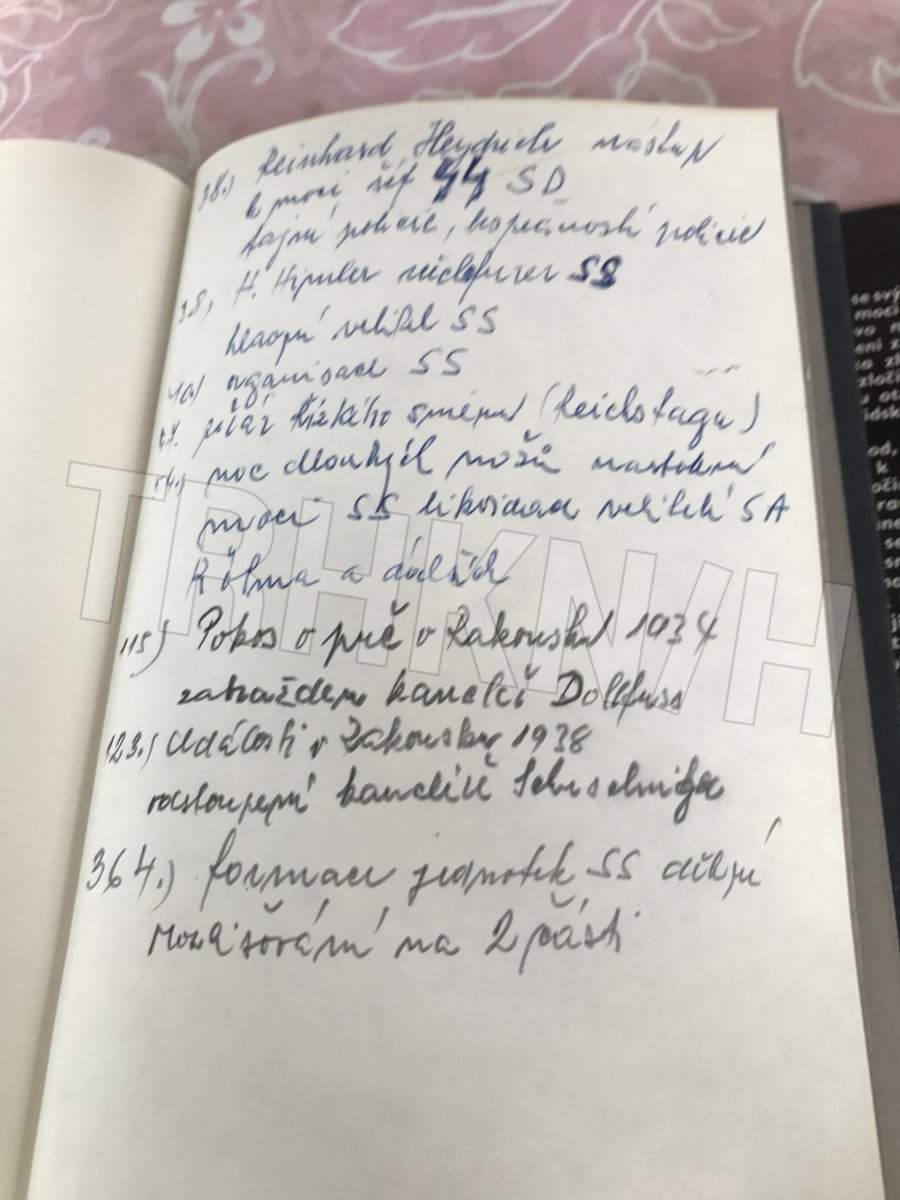 38.) Reinhard Heydrich nástup
k moci šéf SD
tajné policie, bezpečnostní policie
38.) H. Himler SS
hlavní velitel SS
40) organisace SS
47. požár říšského sněmu (Reichstagu)
54.) noc dlouhých nožů nastolení
moci SS likvidace velitelů SA
Röhma a dalších
115) Pokus o puč v Rakousku 1934
zavraždění kancléř Dollfuss
123.) Události v Rakousku 1938
odstoupení kancléř Schuschniga
364.) formace jednotek SS dělení
na 2 části
TBHKNVH
se svý
moci
vo n
ení z
zloči
u ot
idsk
od,
k